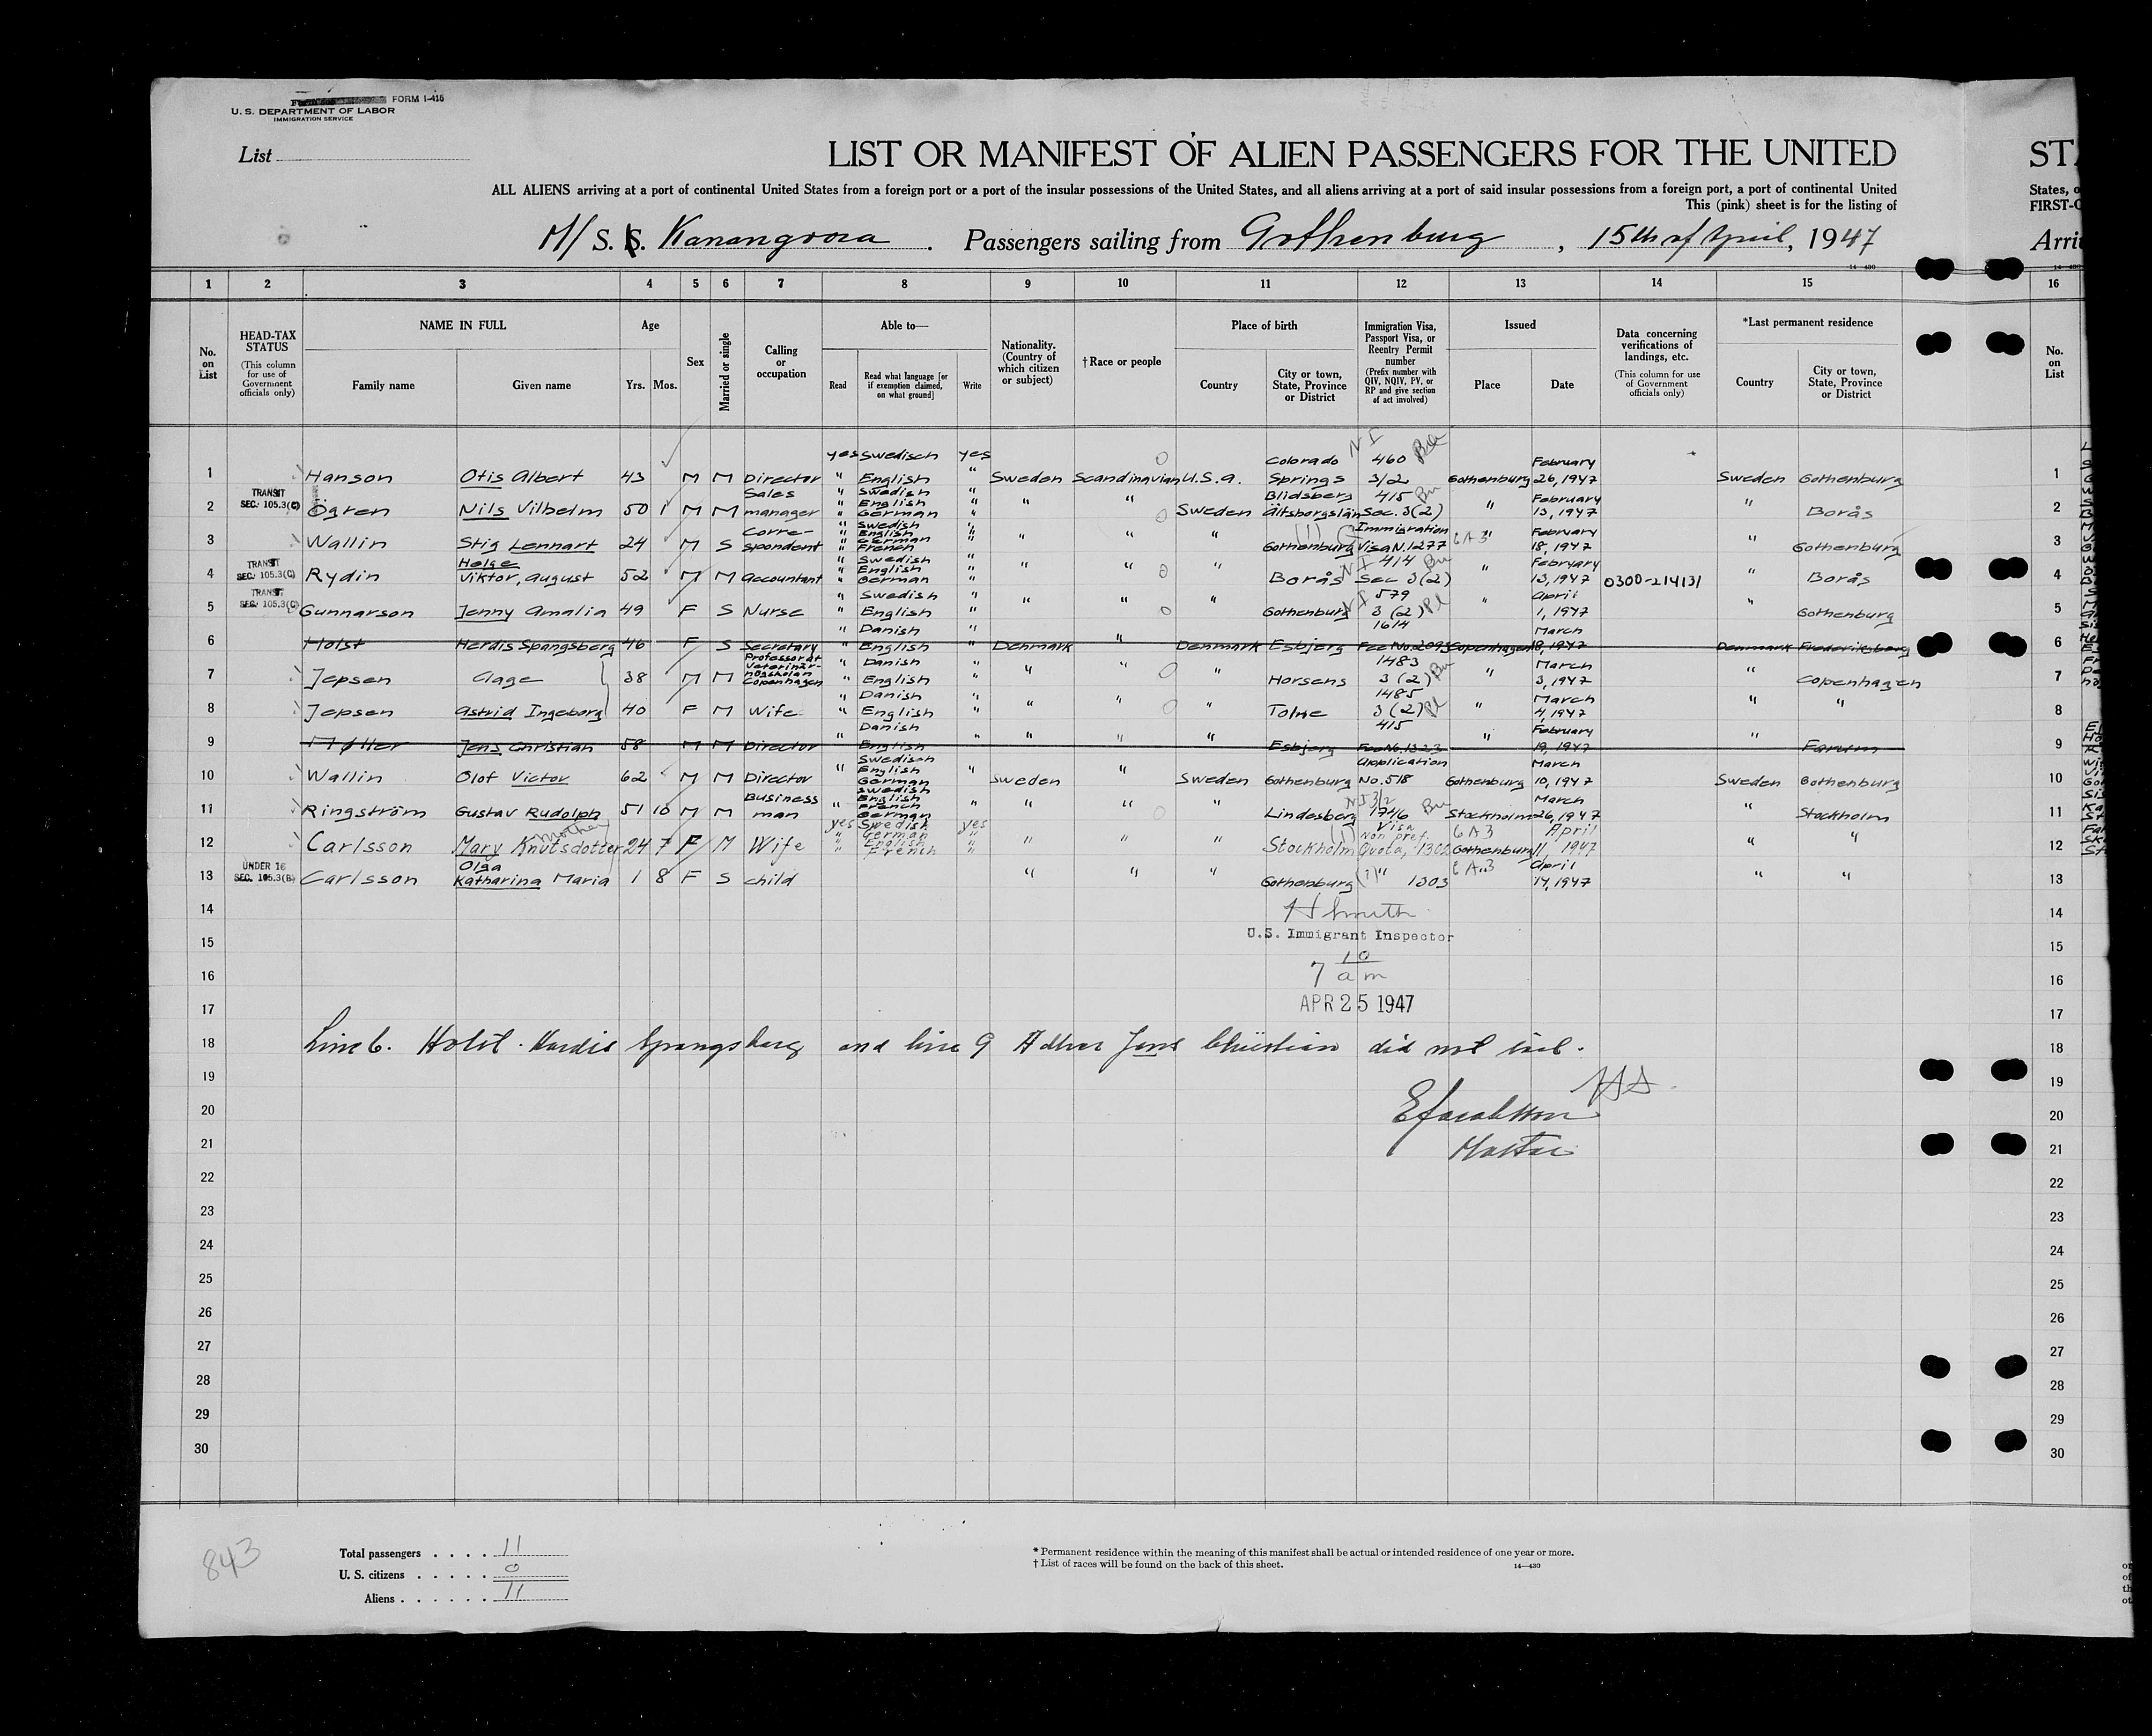 FORM I-415
U. S. DEPARTMENT OF LABOR
IMMIGRATION SERVICE
List
LIST OR MANIFEST OF ALIEN PASSENGERS FOR THE UNITED
ALL ALIENS arriving at a port of continental United States from a foreign port or a port of the insular possessions of the United States, and all aliens arriving at a port of said insular possessions from a foreign port, a port of continental United
This (pink) sheet is for the listing of
M/S. S. Kanangoora. Passengers sailing from Gothenburg, 15th of April, 1947
ST
States, o
FIRST-C
Arri
1 2 3 4 5 6 7 8 9 10 11 12 13 14 15 16
No. on List
HEAD-TAX STATUS
(This column for use of Government officials only)
NAME IN FULL
Family name
Given name
Age
Yrs. Mos.
Sex
Married or single
Calling or occupation
Able to—
Read
Read what language [or if exemption claimed, on what ground]
Write
Nationality. (Country of which citizen or subject)
†Race or people
Place of birth
Country
City or town, State, Province or District
Immigration Visa, Passport Visa, or Reentry Permit number
(Prefix number with QIV, NQIV, PV, or RP and give section of act involved)
Issued
Place
Date
Data concerning verifications of landings, etc.
(This column for use of Government officials only)
*Last permanent residence
Country
City or town, State, Province or District
No. on List
1 Hanson Otis Albert 43 M M Director yes Swedisch yes " English " Sweden Scandinavian U.S.A. Colorado Springs NI 460 3/2 Gothenburg February 26, 1947 Sweden Gothenburg 1
2 TRANSIT SEC. 105.3(C) Ögren Nils Vilhelm 50 1 M M Sales manager " Swedish " " English " " German " " " Sweden Blidsberg Älfsborgslän 415 Sec. 3(2) " February 13, 1947 " Borås 2
3 Wallin Stig Lennart 24 M S Corre-spondent " Swedish " " English " " German " " French " " " " Gothenburg (1) Immigration Visa N. 1277 6A3 " February 18, 1947 " Gothenburg 3
4 TRANSIT SEC. 105.3(C) Rydin Helge Viktor, August 52 M M Accountant " Swedish " " English " " German " " " " Borås NI 414 Sec 3(2) " February 13, 1947 0300-214131 " Borås 4
5 TRANSIT SEC. 105.3(C) Gunnarson Jenny Amalia 49 F S Nurse " Swedish " " English " " " " Gothenburg NI 579 3 (2) " April 1, 1947 " Gothenburg 5
6 Holst Herdis Spangsberg 46 F S Secretary " Danish " " English " Denmark " Denmark Esbjerg 1614 Fee No. 2093 Copenhagen March 18, 1947 Denmark Frederiksberg 6
7 Jepsen Aage 38 M M Professor at Veterinär-högskolan Copenhagen " Danish " " English " " " " Horsens 1483 3 (2) " March 3, 1947 " Copenhagen 7
8 Jepsen Astrid Ingeborg 40 F M Wife " Danish " " English " " " " Tolne 1485 3 (2) " March 4, 1947 " " 8
9 Møller Jens Christian 58 M M Director " Danish English " " " " Esbjerg 415 Fee No. 1323 " February 19, 1947 " Farum 9
10 Wallin Olof Victor 62 M M Director " Swedisch English German " Sweden " Sweden Gothenburg Application No. 518 Gothenburg March 10, 1947 Sweden Gothenburg 10
11 Ringström Gustav Rudolph 51 10 M M Business man " Swedish English French German " " " " Lindesberg NI 3/2 1746 Stockholm March 26, 1947 " Stockholm 11
12 Carlsson Mary Knutsdotter mother 24 7 F M Wife yes Swedish yes " German " " English " French " " " Stockholm (1) Visa Non pref. Quota, 1302 6A3 Gothenburg April 11 1947 " " 12
13 UNDER 16 SEC. 105.3(B) Carlsson Olga Katharina Maria 1 8 F S child " " " Gothenburg (1) " 1303 6A3 " April 14, 1947 " " 13
14 14
U.S. Immigrant Inspector
15 15
16 7 10 am 16
17 APR 25 1947 17
18 Line 6. Holst. Herdis Spangsberg and line 9 Møller Jens Christian did not sail. 18
19 HS 19
20 E Jacobsson 20
21 Master 21
22 22
23 23
24 24
25 25
26 26
27 27
28 28
29 29
30 30
843
Total passengers . . . . 11
U. S. citizens . . . . . 0
Aliens . . . . . . 11
* Permanent residence within the meaning of this manifest shall be actual or intended residence of one year or more.
† List of races will be found on the back of this sheet.
14—430